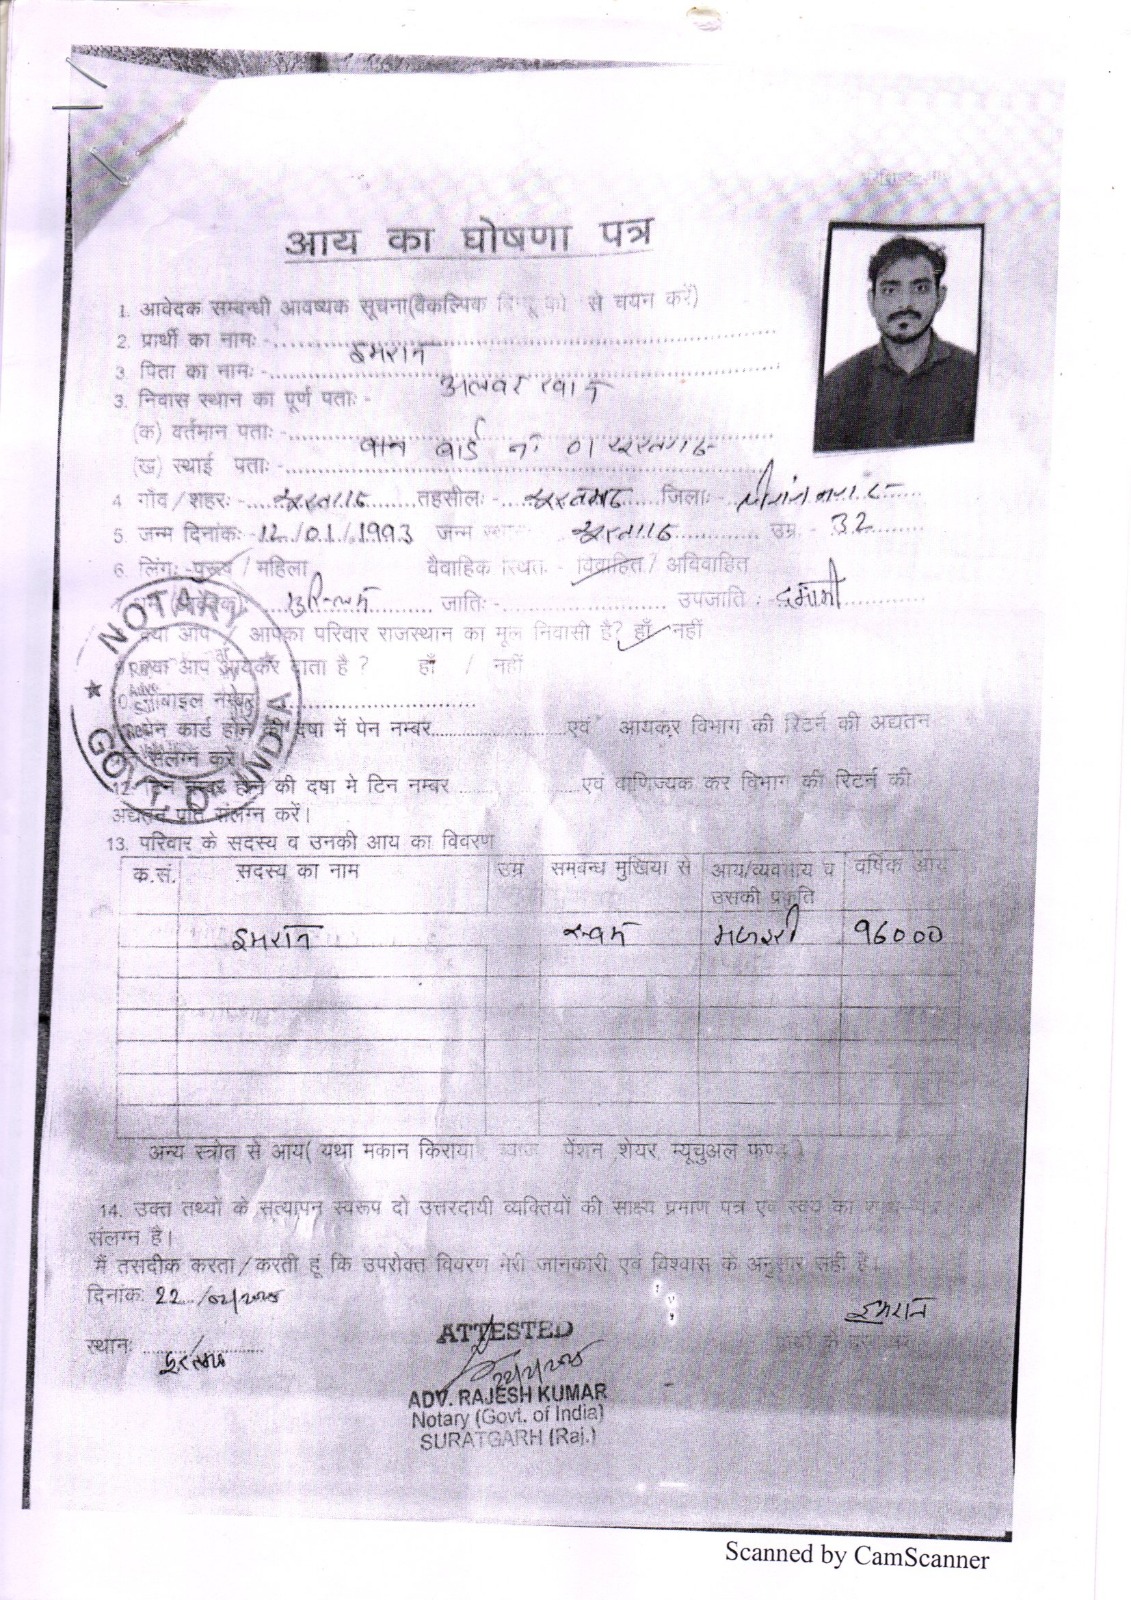 आय का घोषणा पत्र
1. आवेदक सम्बन्धी आवष्यक सूचना(वैकल्पिक से चयन करें)
2. प्रार्थी का नामः - इमरान
3. पिता का नामः - अलवर खान
3. निवास स्थान का पूर्ण पताः -
(क) वर्तमान पताः - वार्ड नं 01 सूरतगढ
(ख) स्थाई पताः -
4 गॉव / शहरः - सूरतगढ तहसीलः - सूरतगढ जिलाः - श्रीगंगानगर
5. जन्म दिनांकः - 12/01/1993 जन्म सूरतगढ उम्र - 32
6 लिंगः - पुरूष / महिला वैवाहिक स्थितः - विवाहित / अविवाहित
जातिः - उपजाति : -
क्या आप / आपका परिवार राजस्थान का मूल निवासी है? हॉ नहीं
क्या आप आयकर दाता है ? हॉ / नहीं
मोबाइल नम्बर
पेन कार्ड होने की दषा में पेन नम्बर एवं आयकर विभाग की रिटर्न की अद्यतन
संलग्न करें।
12. टिन नम्बर होने की दषा मे टिन नम्बर एवं वाणिज्यक कर विभाग की रिटर्न की
अद्यतन प्रति संलग्न करें।
NOTARY
GOVT. OF INDIA
13. परिवार के सदस्य व उनकी आय का विवरण
क.सं. सदस्य का नाम उम्र समबन्ध मुखिया से आय/व्यवसाय व वर्षिक आय
उसकी प्रकृति
इमरान स्वयं मजदूरी 96000
अन्य स्त्रोत से आय( यथा मकान किराया ब्याज पेंशन ,शेयर, म्यूचुअल फण्ड )
14. उक्त तथ्यों के सत्यापन स्वरूप दो उत्तरदायी व्यक्तियों की साक्ष्य प्रमाण पत्र एवं स्वयं का
संलग्न है।
मैं तसदीक करता / करती हूं कि उपरोक्त विवरण मेरी जानकारी एवं विश्वास के अनुसार सही है।
दिनांकः 22/02/2025
इमरान
स्थानः सूरतगढ
ATTESTED
ADV. RAJESH KUMAR
Notary (Govt. of India)
SURATGARH (Raj.)
Scanned by CamScanner